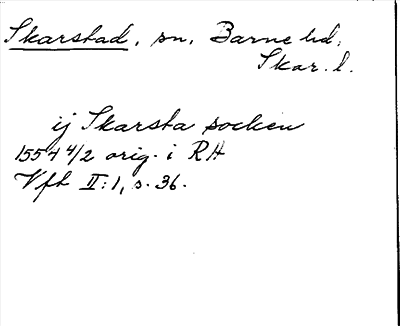 Skarstad, sn, Barne hd,
Skar. l.
ij Skarsta socken
1554 4/2 orig. i RA
Vft II:1, s. 36.